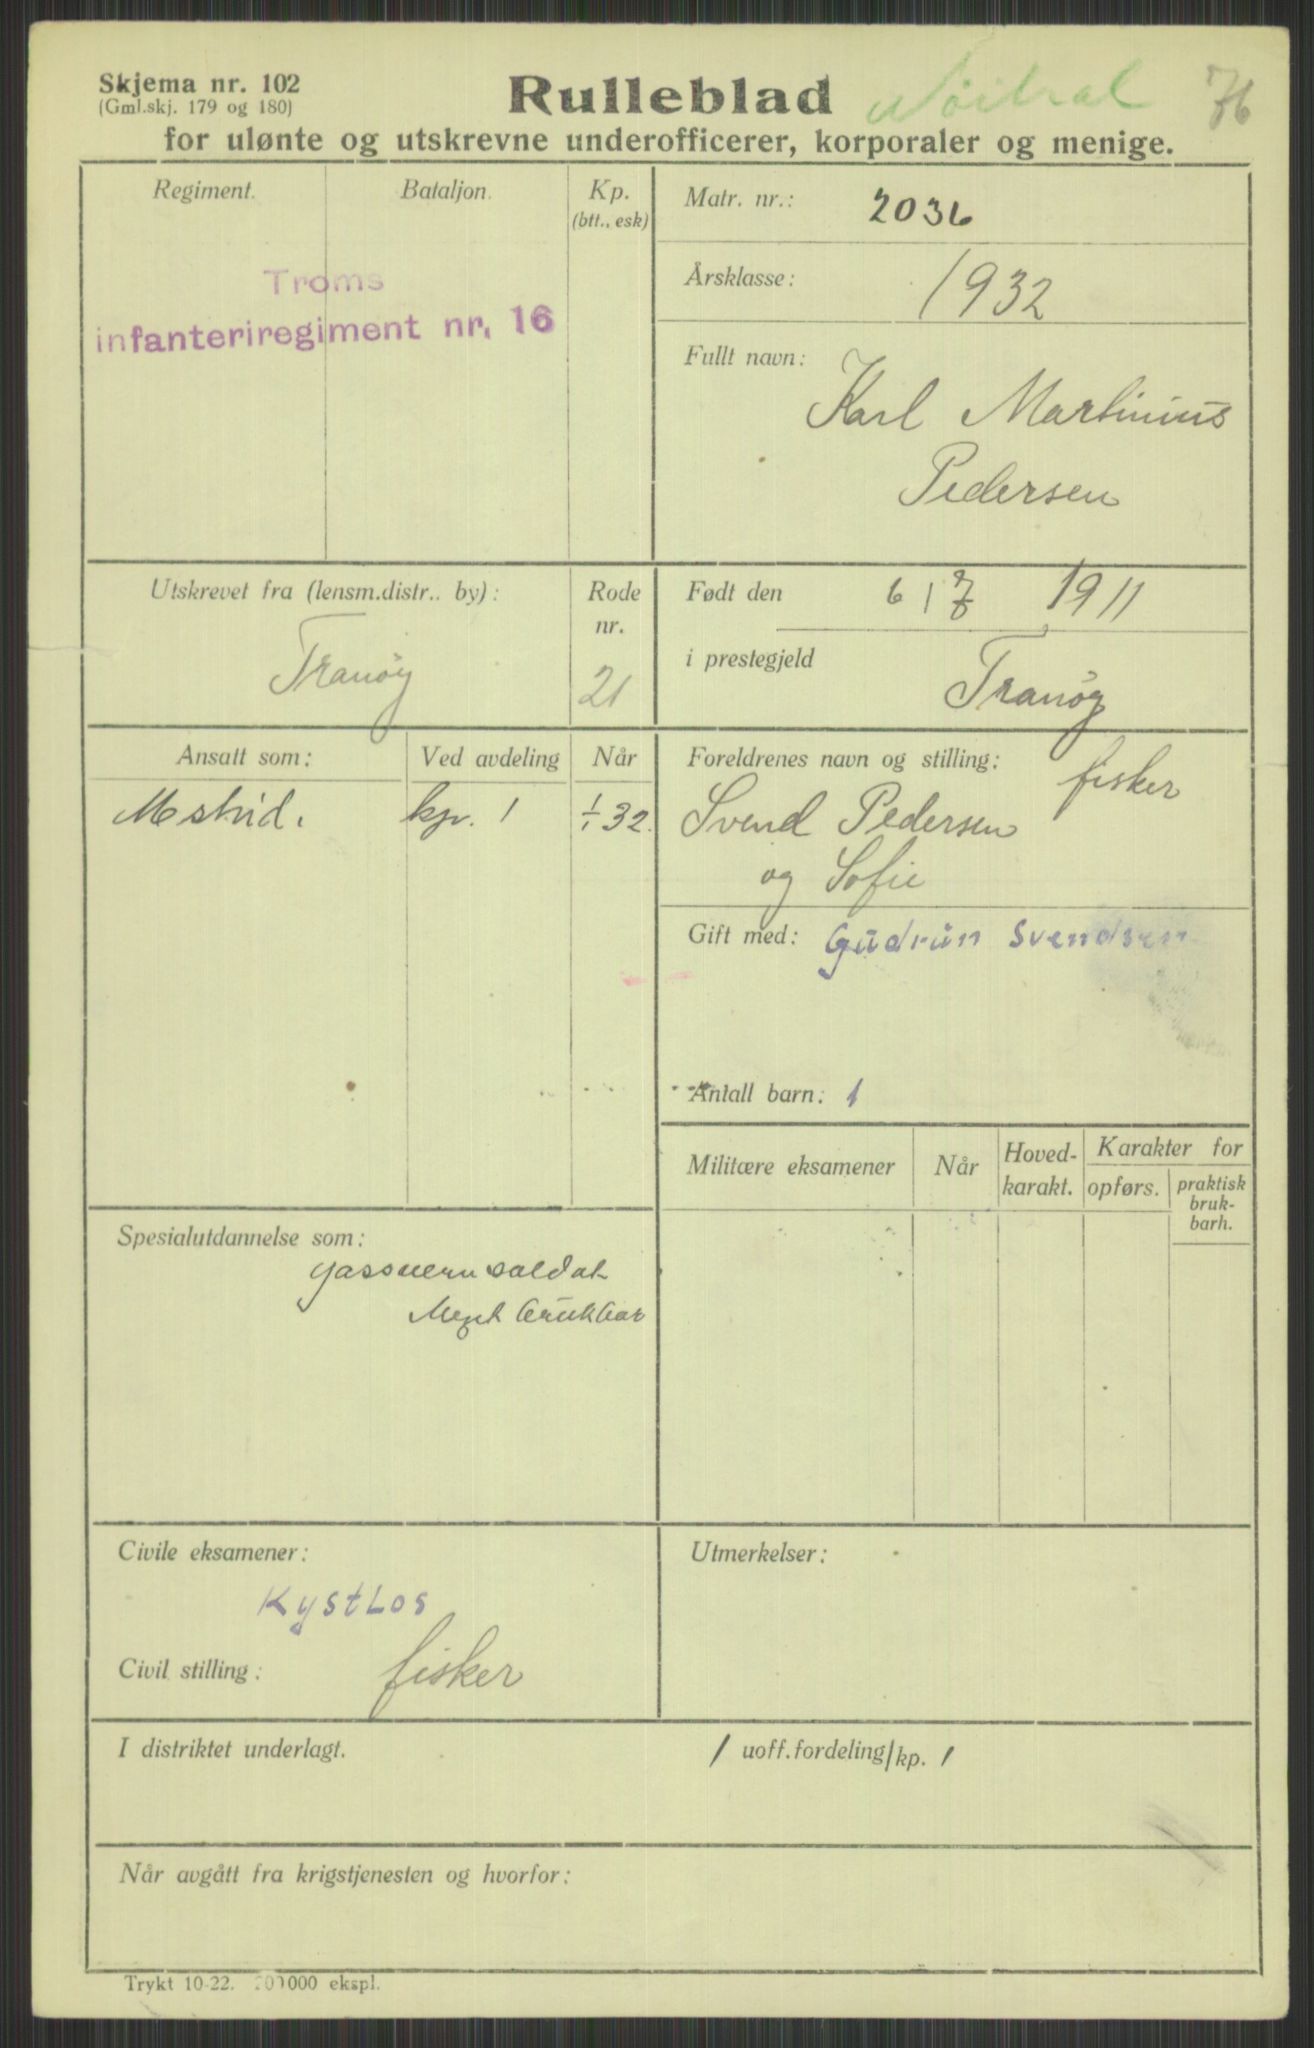 Skjema nr. 102
(Gml.skj. 179 og 180)
Rulleblad
Nöitral
76
for ulønte og utskrevne underofficerer, korporaler og menige.
Regiment.
Bataljon.
Kp.
(btt., esk)
Troms
infanteriregiment nr. 16
Matr. nr.: 2036
Årsklasse: 1932
Fullt navn:
Karl Martinius
Pedersen
Utskrevet fra (lensm.distr.. by):
Tranöy
Rode
nr.
21
Født den 6 / 1911
i prestegjeld
Tranöy
Ansatt som:
Ved avdeling
Når
kp. 1
1/1 32.
Foreldrenes navn og stilling:
fisker
Svend Pedersen
og Sofie
Gift med: Gudrun Svendsen
Antall barn: 1
Militære eksamener
Når
Hoved-
karakt.
Karakter for
opførs.
praktisk
bruk-
barh.
Spesialutdannelse som:
gassvernsoldat
Meget brukbar
Civile eksamener:
KystLos
Civil stilling: fisker
Utmerkelser:
I distriktet underlagt.
/ uoff.fordeling/kp. 1
Når avgått fra krigstjenesten og hvorfor:
Trykt 10-22. 200000 ekspl.